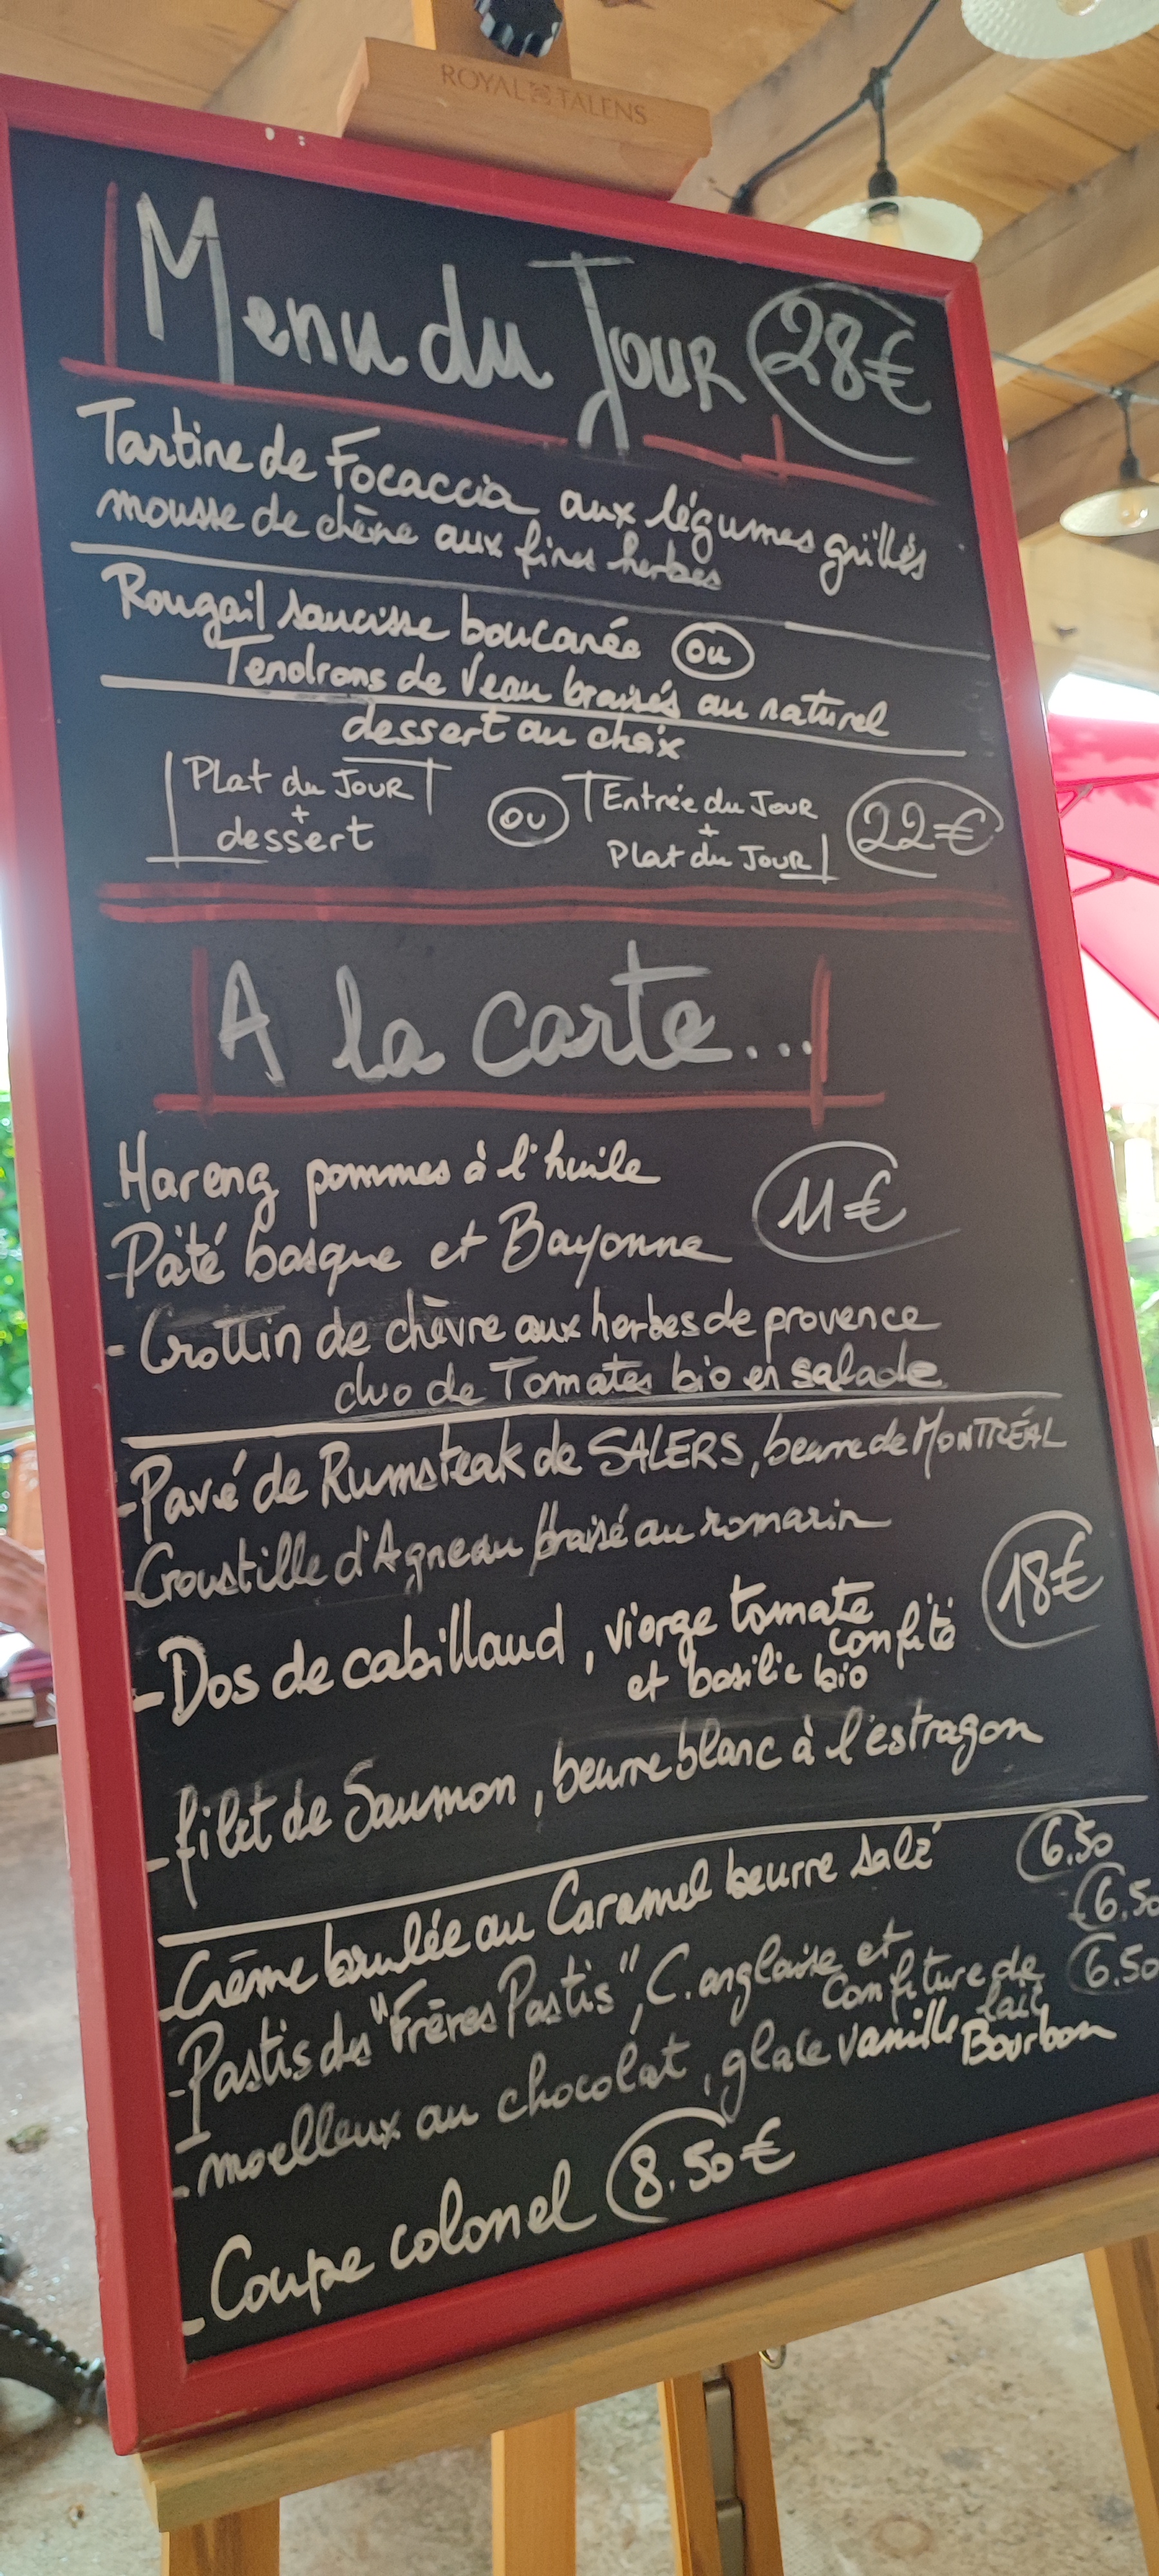 ROYAL TALENS
Menu du Jour 28€
Tartine de Focaccia aux légumes grillés
mousse de chèvre aux fines herbes
Rougail saucisse boucanée ou
Tendrons de Veau braisés au naturel
dessert au choix
Plat du Jour
+
dessert
ou
Entrée du Jour
+
Plat du Jour
22€
A la carte...
Hareng pommes à l'huile
11€
- Pâté basque et Bayonne
- Crottin de chèvre aux herbes de provence
duo de Tomates bio en salade
- Pavé de Rumsteak de SALERS, beurre de MONTRÉAL
- Croustille d'Agneau braisé au romarin
18€
- Dos de cabillaud, vierge tomate
confité
et basilic bio
- filet de Saumon, beurre blanc à l'estragon
- Crème brulée au Caramel beurre salé 6.50
- Pastis des "Frères Pastis", C. anglaise et 6.50
confiture de
lait
- moelleux au chocolat, glace vanille Bourbon 6.50
- Coupe colonel 8.50€